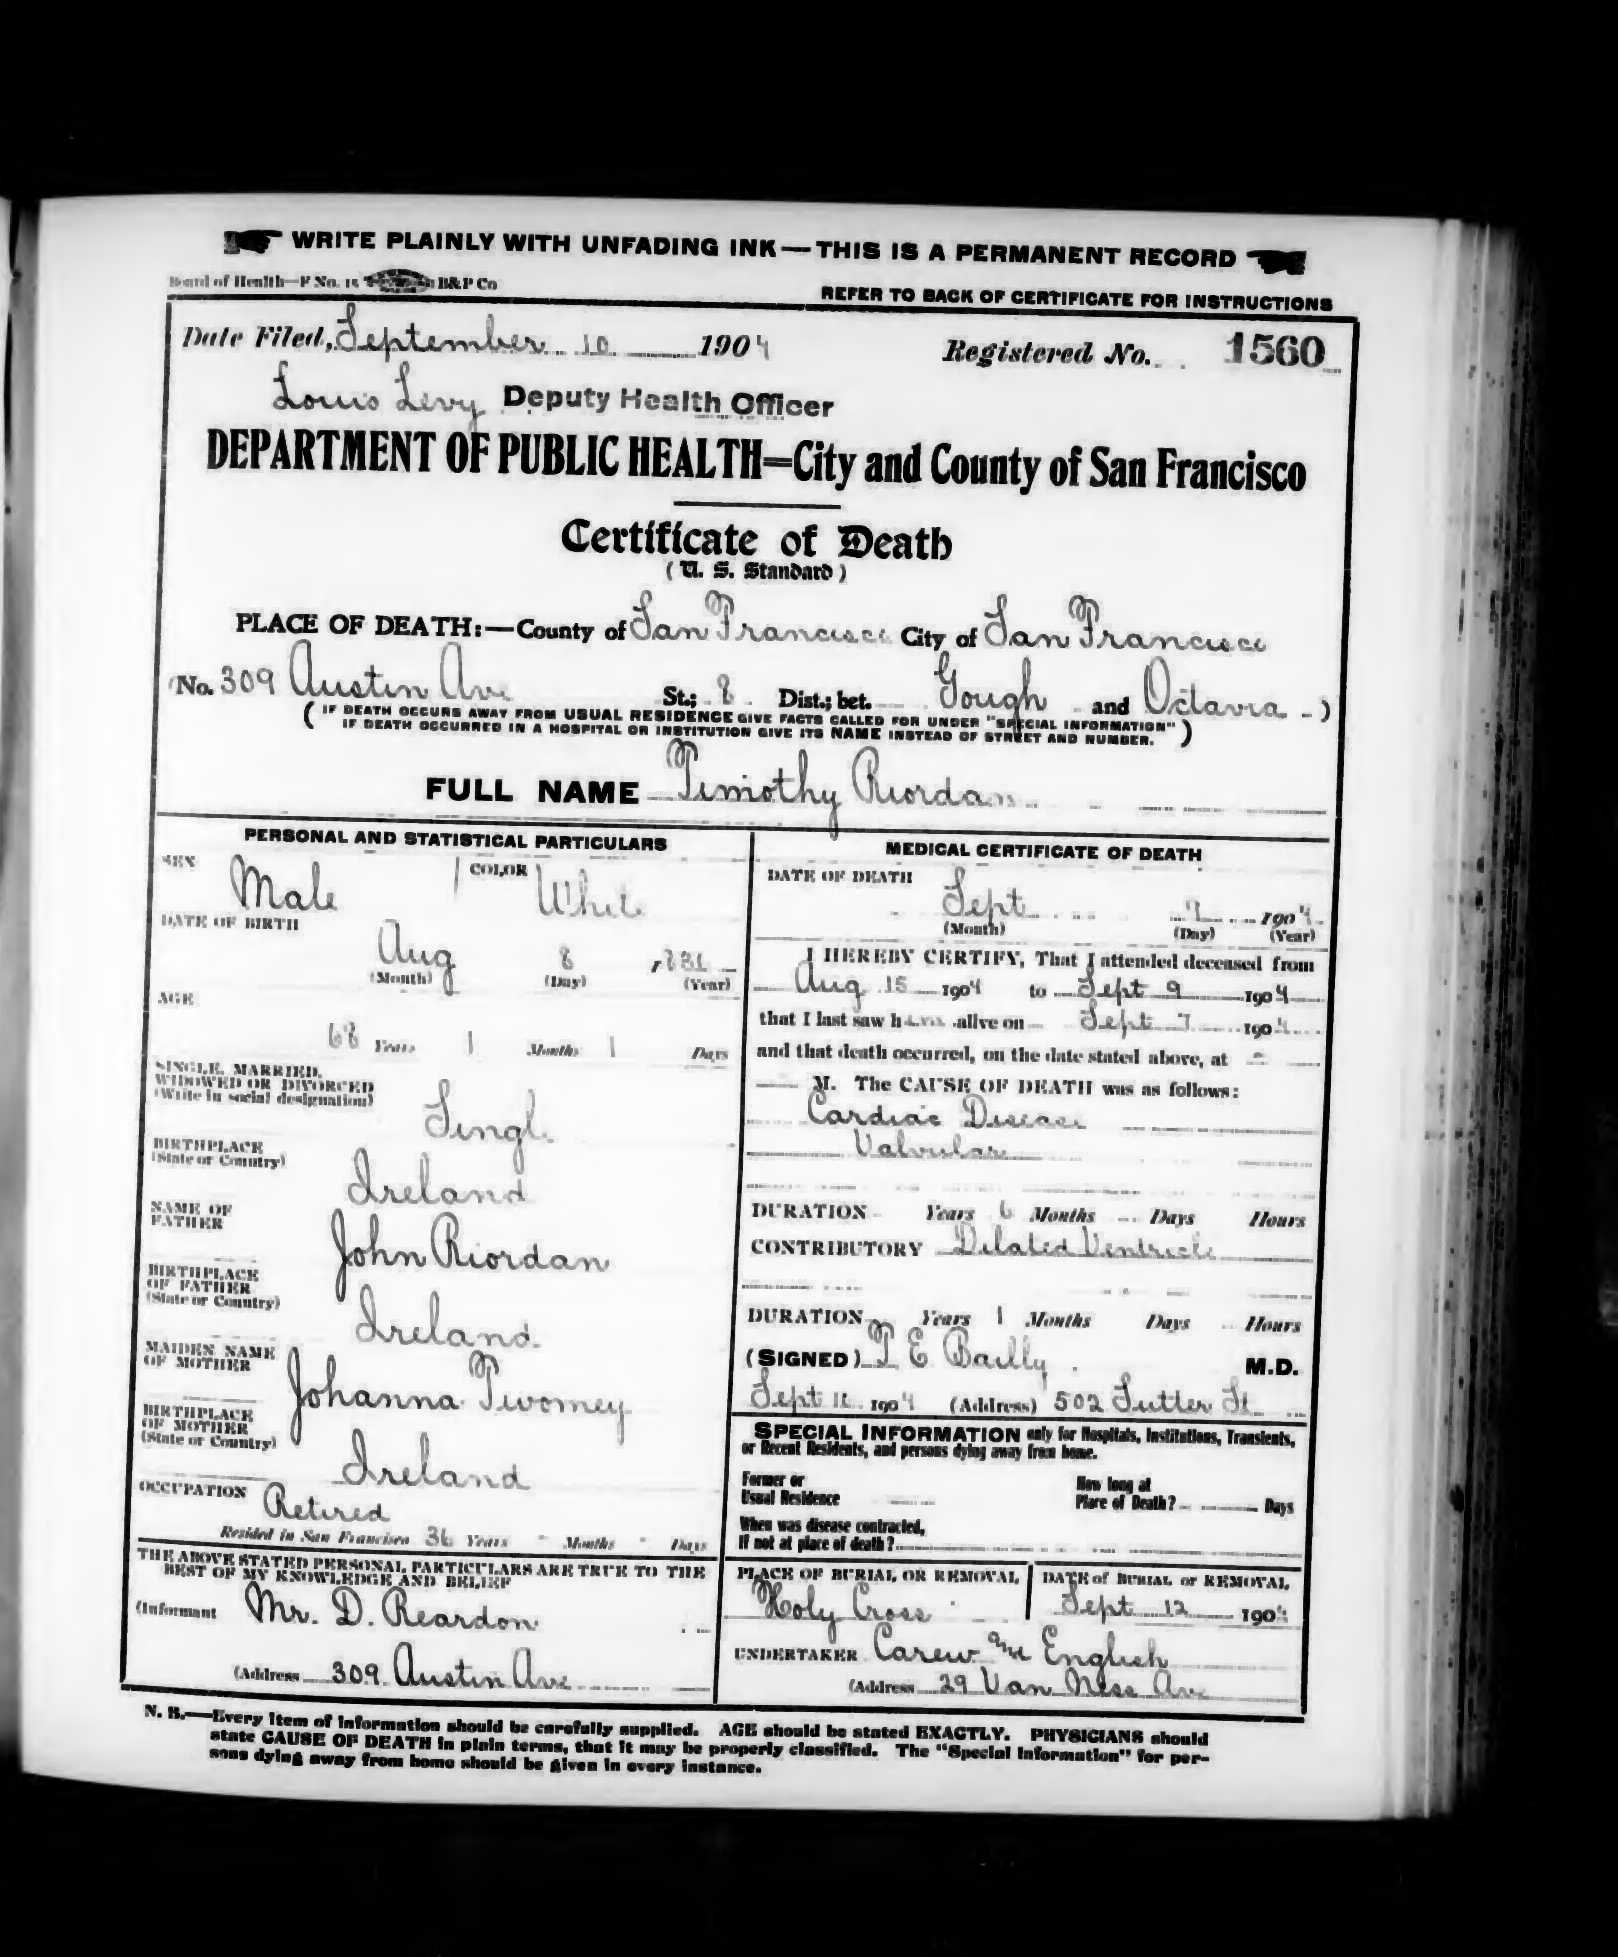 WRITE PLAINLY WITH UNFADING INK — THIS IS A PERMANENT RECORD
Board of Health—F No. 15 B&P Co
REFER TO BACK OF CERTIFICATE FOR INSTRUCTIONS
Date Filed, September 10 1904 Registered No. 1560
Louis Levy Deputy Health Officer
DEPARTMENT OF PUBLIC HEALTH=City and County of San Francisco
Certificate of Death
(U. S. Standard)
PLACE OF DEATH:—County of San Francisco City of San Francisco
(No. 309 Austin Ave St.; 8 Dist.; bet. Gough and Octavia )
( IF DEATH OCCURS AWAY FROM USUAL RESIDENCE GIVE FACTS CALLED FOR UNDER "SPECIAL INFORMATION"
IF DEATH OCCURRED IN A HOSPITAL OR INSTITUTION GIVE ITS NAME INSTEAD OF STREET AND NUMBER. )
FULL NAME Timothy Riordan
PERSONAL AND STATISTICAL PARTICULARS
SEX Male COLOR White
DATE OF BIRTH
Aug 8
(Month) (Day) (Year)
AGE
68 Years 1 Months 1 Days
SINGLE, MARRIED,
WIDOWED OR DIVORCED
(Write in social designation)
Single
BIRTHPLACE
(State or Country)
Ireland
NAME OF
FATHER
John Riordan
BIRTHPLACE
OF FATHER
(State or Country)
Ireland.
MAIDEN NAME
OF MOTHER
Johanna Twomey
BIRTHPLACE
OF MOTHER
(State or Country)
Ireland
OCCUPATION Retired
Resided in San Francisco 36 Years - Months - Days
THE ABOVE STATED PERSONAL PARTICULARS ARE TRUE TO THE
BEST OF MY KNOWLEDGE AND BELIEF
(Informant Mr. D. Reardon
(Address 309 Austin Ave
MEDICAL CERTIFICATE OF DEATH
DATE OF DEATH
Sept 9 1904
(Month) (Day) (Year)
I HEREBY CERTIFY, That I attended deceased from
Aug 15 1904 to Sept 9 1904
that I last saw him alive on Sept 7 1904
and that death occurred, on the date stated above, at
M. The CAUSE OF DEATH was as follows:
Cardiac Disease
Valvular
DURATION Years 6 Months Days Hours
CONTRIBUTORY Dilated Ventricle
DURATION Years 1 Months Days Hours
(SIGNED) T E Bailly M.D.
Sept 1904 (Address) 502 Sutter St
SPECIAL INFORMATION only for Hospitals, Institutions, Transients,
or Recent Residents, and persons dying away from home.
Former or
Usual Residence
How long at
Place of Death? Days
When was disease contracted,
If not at place of death?
PLACE OF BURIAL OR REMOVAL
Holy Cross
DATE of BURIAL or REMOVAL
Sept 12 1904
UNDERTAKER Carew and English
(Address 29 Van Ness Ave
N. B.—Every item of information should be carefully supplied. AGE should be stated EXACTLY. PHYSICIANS should
state CAUSE OF DEATH in plain terms, that it may be properly classified. The "Special Information" for per-
sons dying away from home should be given in every instance.